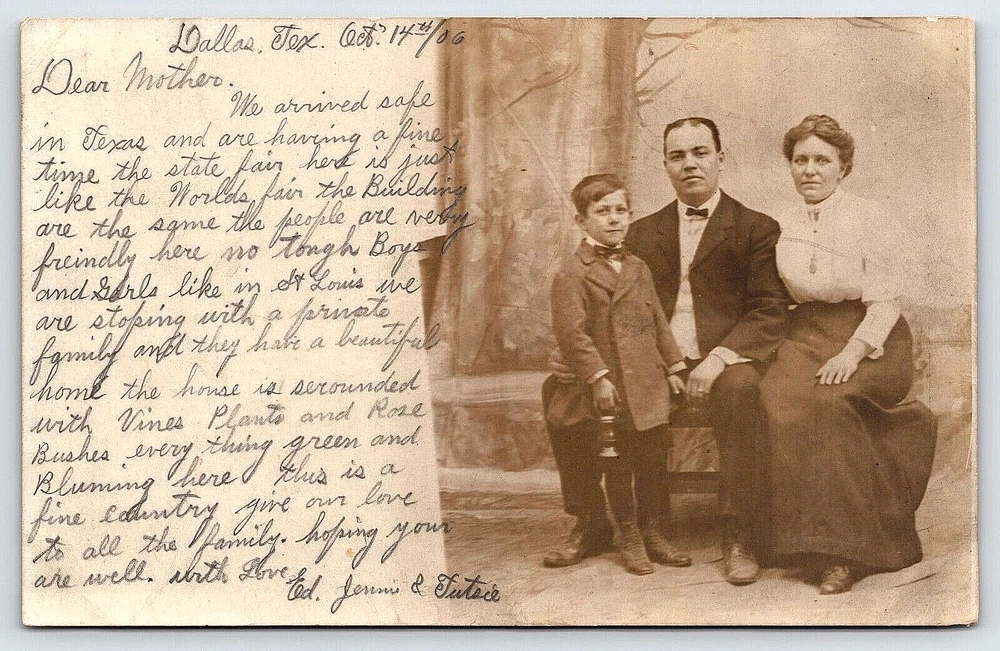 Dallas, Tex. Oct. 14th/06
Dear Mother.
We arrived safe
in Texas and are having a fine
time the state fair here is just
like the Worlds fair the Building
are the same the people are very
freindly here no tough Boys
and Garls like in St Louis we
are stoping with a private
family and they have a beautiful
home the house is serounded
with Vines Plants and Rose
Bushes every thing green and
Bluming here this is a
fine country give our love
to all the family. hoping your
are well. with Love
Ed. Jenni & Tutsie